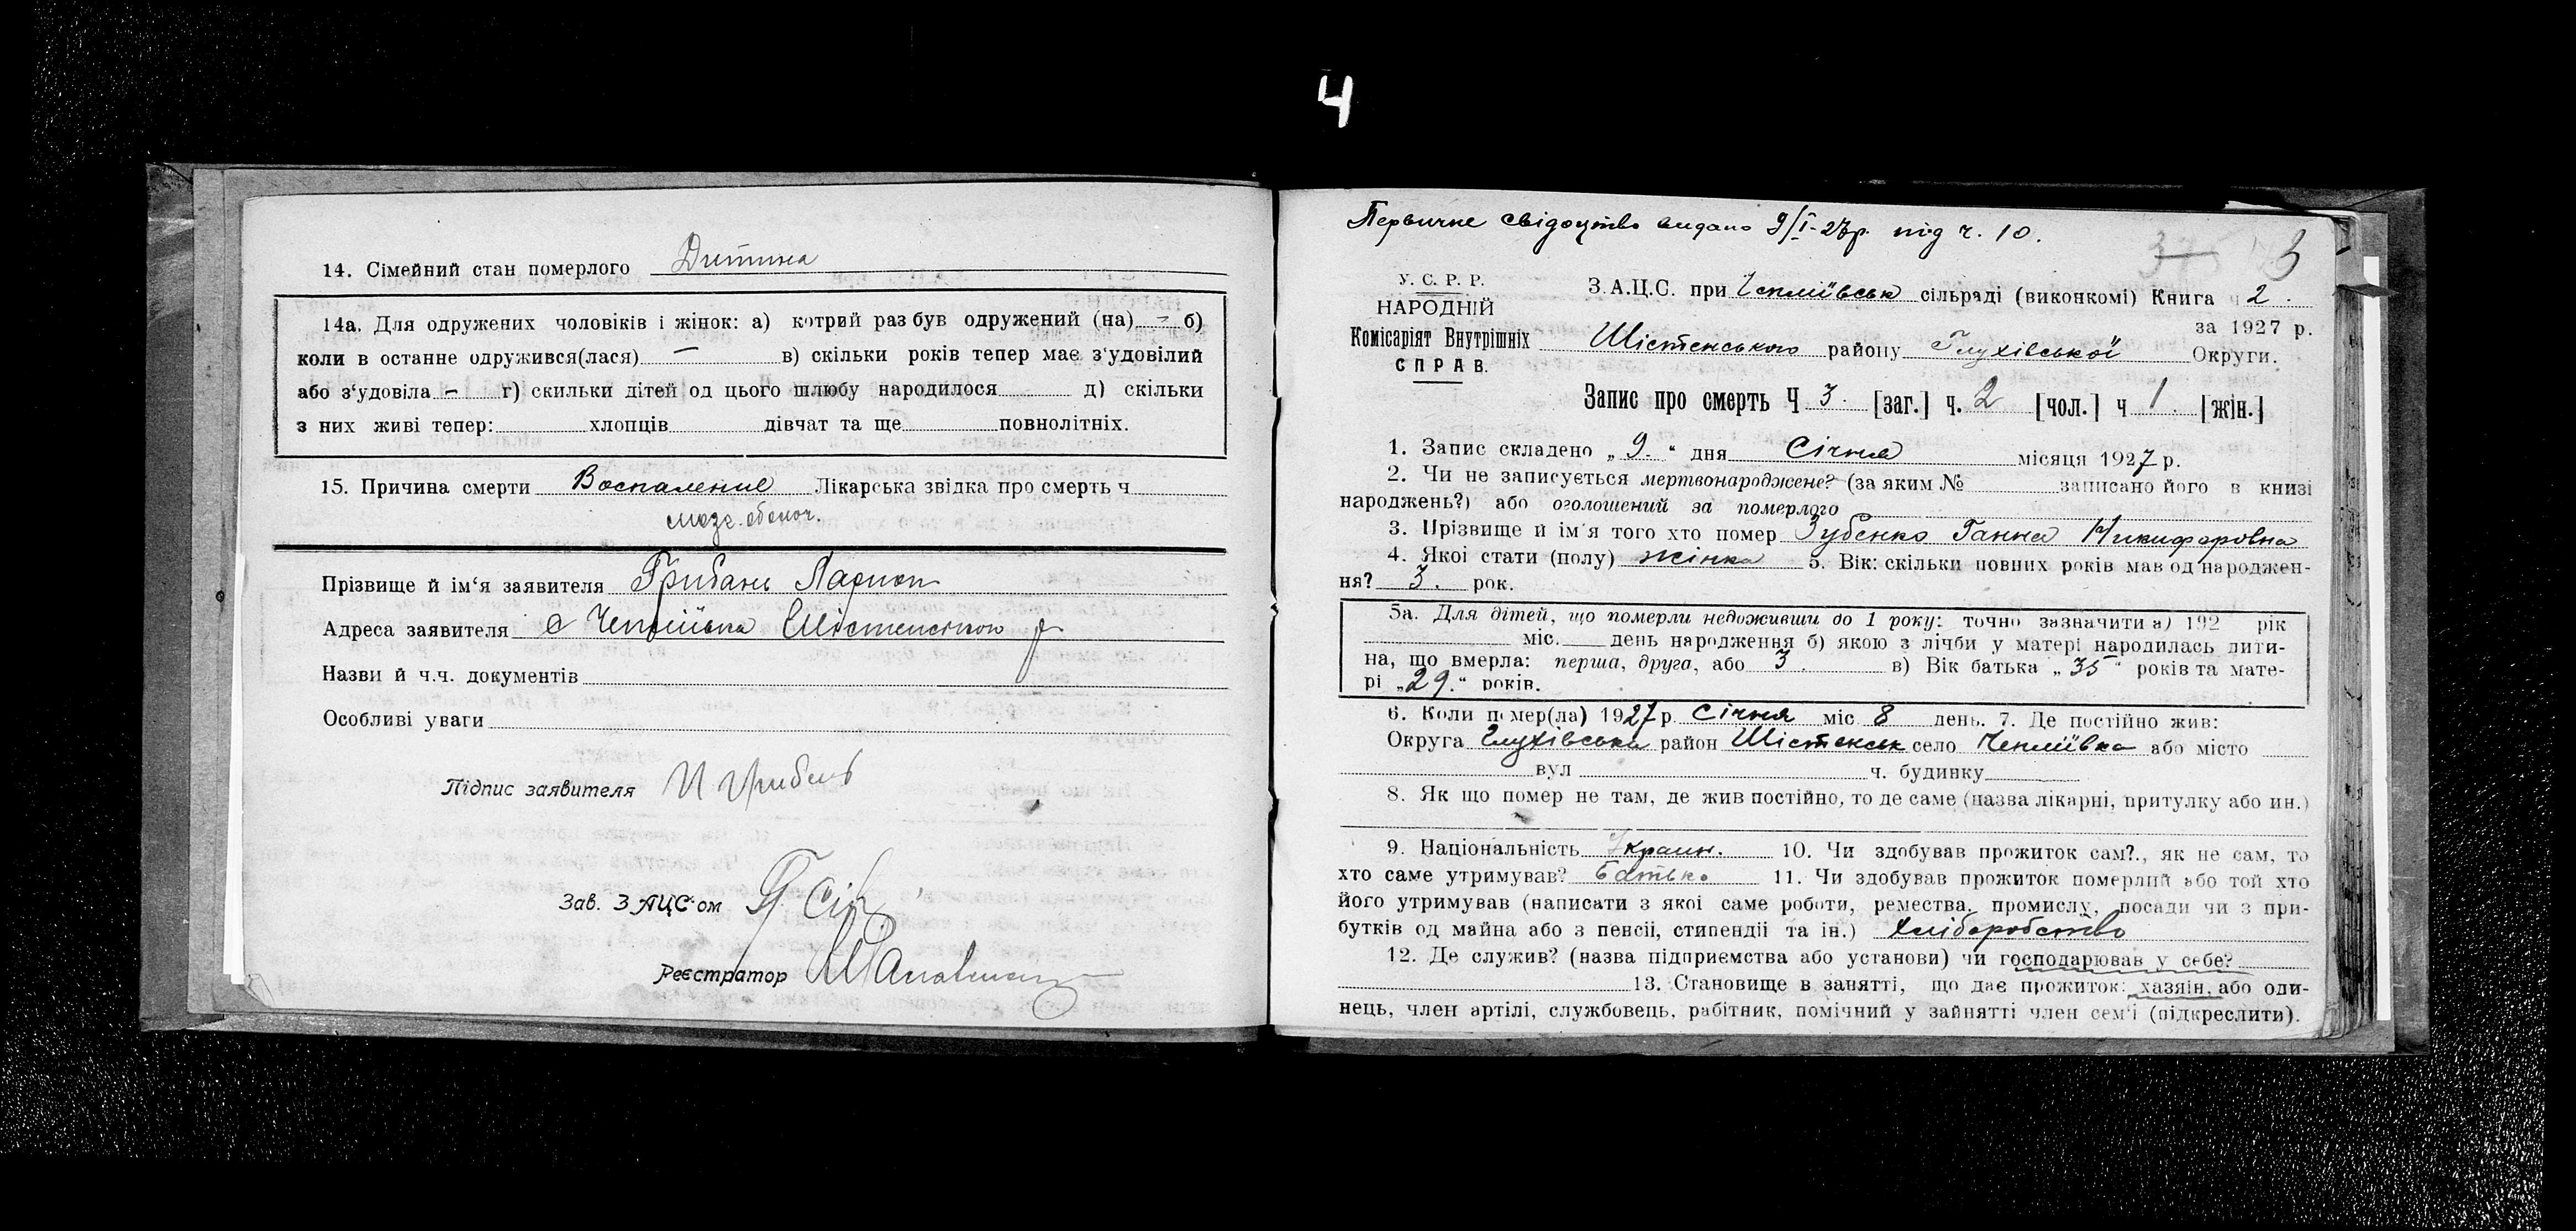 4
14. Сімейний стан померлого Дитина
14а. Для одружених чоловіків і жінок: а) котрий раз був одружений (на) – б)
коли в останне одружився(лася) – в) скільки років тепер має з'удовілий
або з'удовіла – г) скильки дітей од цього шлюбу народилося д) скільки
з них живі тепер: хлопців дівчат та ще повнолітніх.
15. Причина смерти Воспаление Лікарська звідка про смерть ч
мозг. оболоч.
Прізвище й ім'я заявителя Грибань Ларион
Адреса заявителя с Чепліївка Шістенського р
Назви й ч.ч. документів
Особливі уваги
Підпис заявителя Грибань
Зав. ЗАЦС'ом
Реєстратор
Первичне свідоцтво видано 9/I-27р. під ч. 10.
3
У. С. Р. Р.
НАРОДНІЙ
Комісаріят Внутрішніх
СПРАВ.
З.А.Ц.С. при Чепліївськ сільраді (виконкомі) Книга ч 2.
за 1927 р.
Шістенського району Глухівської Округи.
Запис про смерть Ч 3. [заг.] ч. 2 [чол.] ч 1. [жін.]
1. Запис складено „ 9. “ дня Січня місяця 1927 р.
2. Чи не записується мертвонароджене? (за яким № записано його в книзі
народжень?) або оголошений за померлого
3. Прізвище й ім'я того хто помер Зубенко Ганна Никифоровна
4. Якої стати (полу) жінка 5. Вік: скільки повних років мав од народжен-
ня? 3. рок.
5а. Для дітей, що померли недоживши до 1 року: точно зазначити а) 192 рік
міс. день народження б) якою з лічби у матері народилась дити-
на, що вмерла: перша, друга, або 3. в) Вік батька „ 35 “ років та мате-
рі „ 29. “ років.
6. Коли помер(ла) 1927 р. Січня міс 8 день. 7. Де постійно жив:
Округа Глухівська район Шістенськ село Чепліївка або місто
вул ч. будинку
8. Як що помер не там, де жив постійно, то де саме (назва лікарні, притулку або ин.)
9. Національність Украин. 10. Чи здобував прожиток сам?., як не сам, то
хто саме утримував? Батько 11. Чи здобував прожиток померлий або той хто
його утримував (написати з якої саме роботи, ремества, промислу, посади чи з при-
бутків од майна або з пенсії, стипендії та ін.) Хліборобство
12. Де служив? (назва підприємства або установи) чи господарював у себе?
13. Становище в занятті, що дає прожиток: хазяїн, або оди-
нець, член артілі, службовець, рабітник, помічний у зайнятті член сем'ї (підкреслити).